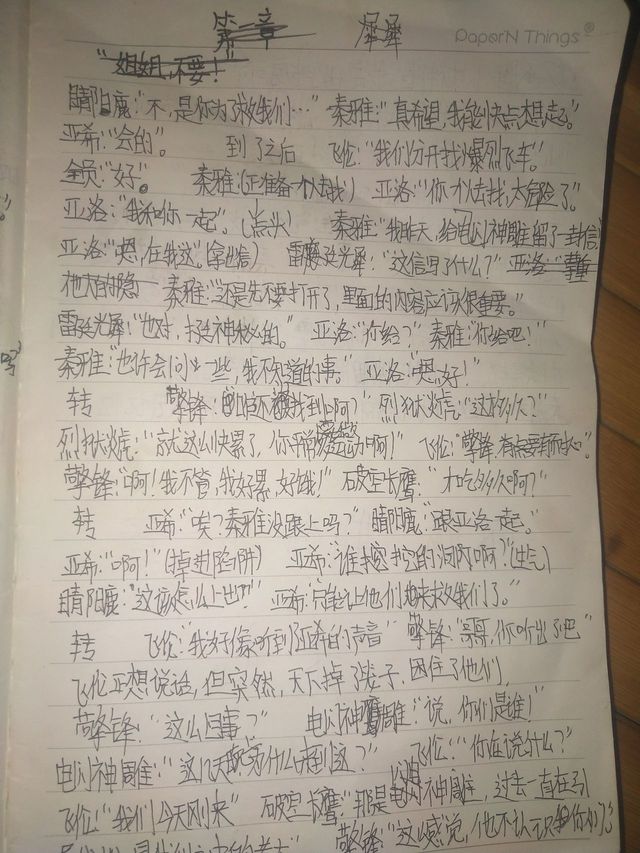 第一章 PaperN Things®
"姐姐，不要！"
晴阳鹿："不，是你为了救我们…" 秦雅："真希望，我能快点想起。"
亚希："会的"。 到了之后 飞伦："我们分开找爆烈飞车"。
全员："好"。 秦雅（正准备一个人去找） 亚洛："你一个人去找，太危险了。
亚洛："我和你一起"。（点头） 秦雅："我昨天，给电闪神雕留了一封信
亚洛："嗯，在我这"。（拿出信） 雷霆光犀："这信写了什么？" 亚洛：
秦雅："还是先不要打开了，里面的内容应该很重要。"
雷霆光犀："也对，挺神秘的。 亚洛："你给？" 秦雅："你给吧！"
秦雅："也许会问出一些，我不知道的事。" 亚洛："嗯，好！"
转 擎锋： 找到啊？" 烈狱炎虎："这才多久？"
烈狱炎虎："就这么快累了，你平常 运动啊！" 飞伦："擎锋
擎锋："啊！我不管，我好累，好饿！" 破空长鹰："才吃多久啊？"
转 亚希："唉？秦雅没跟上吗？" 晴阳鹿："跟亚洛一起。"
亚希："啊！"（掉进陷阱） 亚希："谁 挖的洞啊啊？（生气）
晴阳鹿："这该怎么上出 " 亚希："只能让他们 来救我们了。"
转 飞伦："我好像听到了亚希的声音" 擎锋："哥哥，你听出了吧"
飞伦正想说话，但突然，天下掉了笼子，困住了他们，
擎锋："这么回事？" 电闪神雕："说，你们是谁！"
电闪神雕："这几天 为什么来到这？" 飞伦："你在说什么？"
飞伦："我们今天刚来" 破空长鹰："那是电闪神雕，过去一直在
擎锋："这么感觉，他不认识 你们？